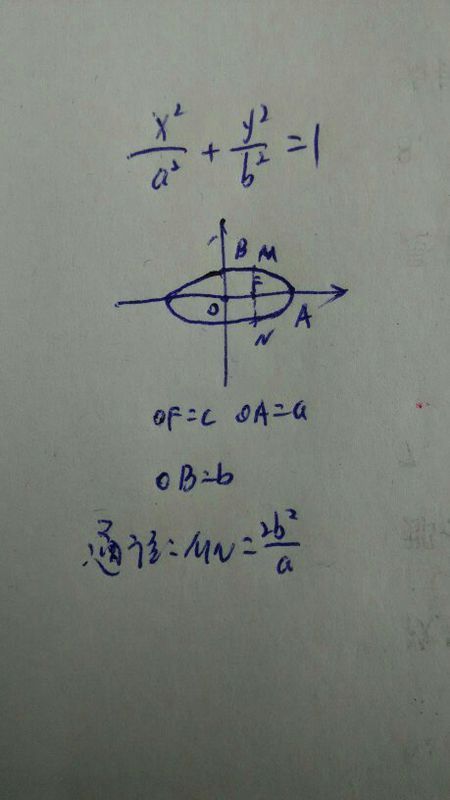 x²/a² + y²/b² = 1
B M
F
O A
N
OF=c OA=a
OB=b
通径=MN=2b²/a